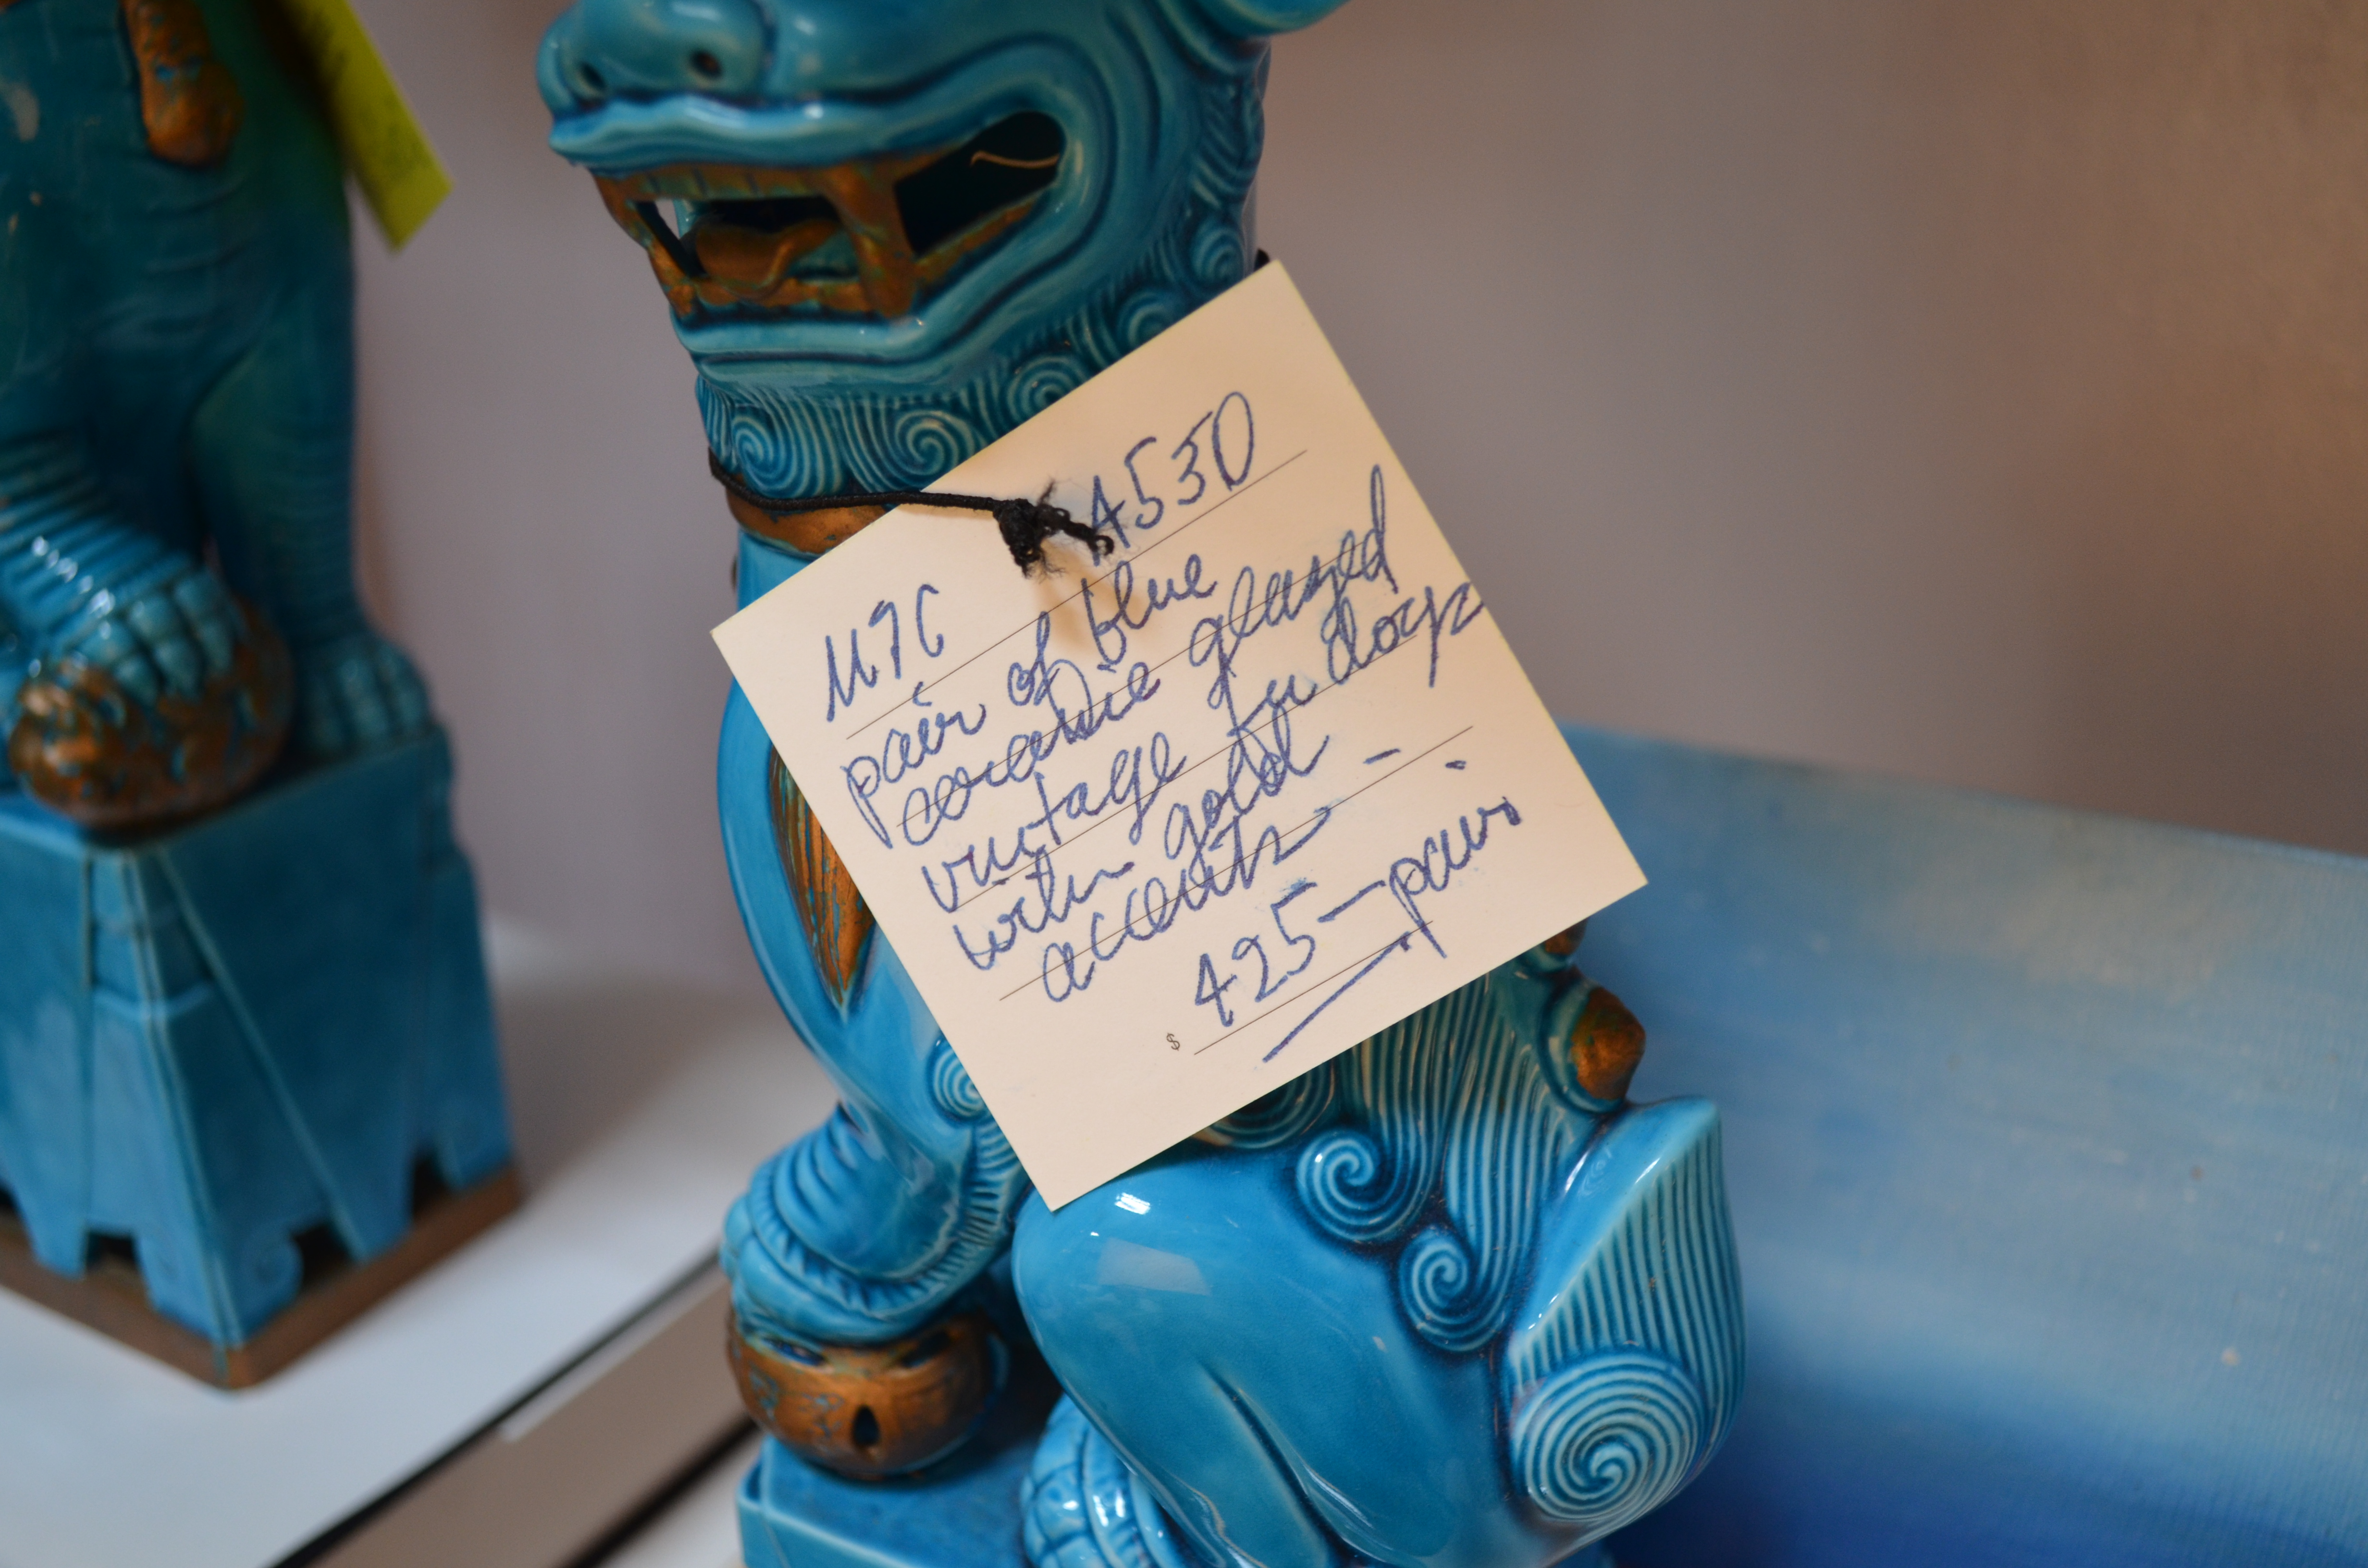 4530
M7C
pair of blue
ceramic glazed
vintage fu dogs
with gold -
accents
$ 425 - pair